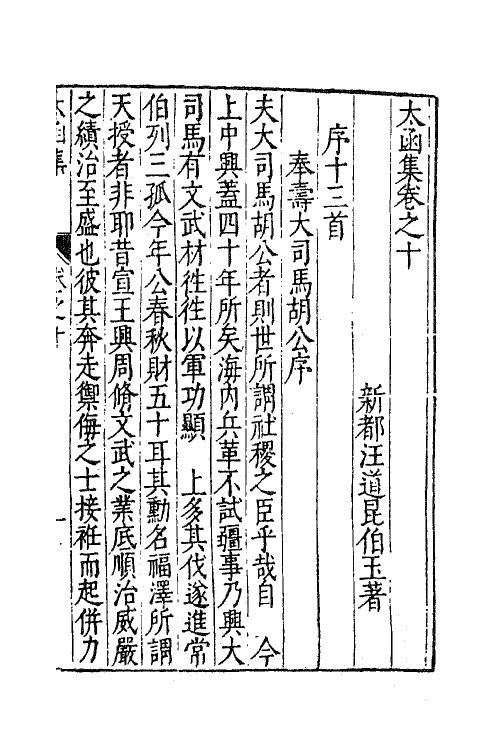 太函集卷之十
新都汪道昆伯玉著
序十三首
奉壽大司馬胡公序
夫大司馬胡公者則世所謂社稷之臣乎哉自　今
上中興蓋四十年所矣海內兵革不試疆事乃興大
司馬有文武材徃徃以軍功顯　上多其伐遂進常
伯列三孤今年公春秋財五十耳其勳名福澤所謂
天授者非耶昔宣王興周脩文武之業底順治威嚴
之績治至盛也彼其奔走禦侮之士接袵而起併力
太函集
卷之十
一